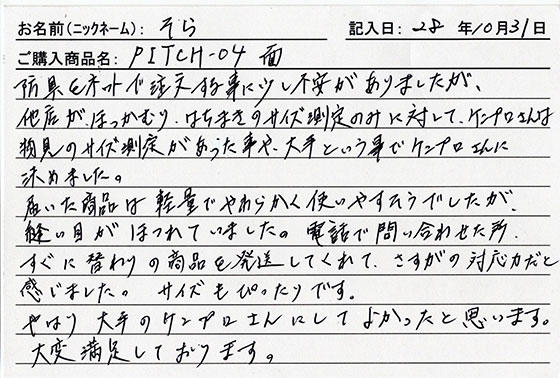 お名前(ニックネーム): そら 記入日: 28 年10月31日
ご購入商品名: PITCH-04 面
防具をネットで注文する事に少し不安がありましたが、
他店が、ほっかむり、はちまきのサイズ測定のみに対して、ケンプロさんは
物見のサイズ測定があった事や、大手という事でケンプロさんに
決めました。
届いた商品は軽量でやわらかく使いやすそうでしたが、
縫い目がほつれていました。電話で問い合わせた所、
すぐに替わりの商品を発送してくれて、さすがの対応力だと
感じました。 サイズもぴったりです。
やはり大手のケンプロさんにしてよかったと思います。
大変満足しております。